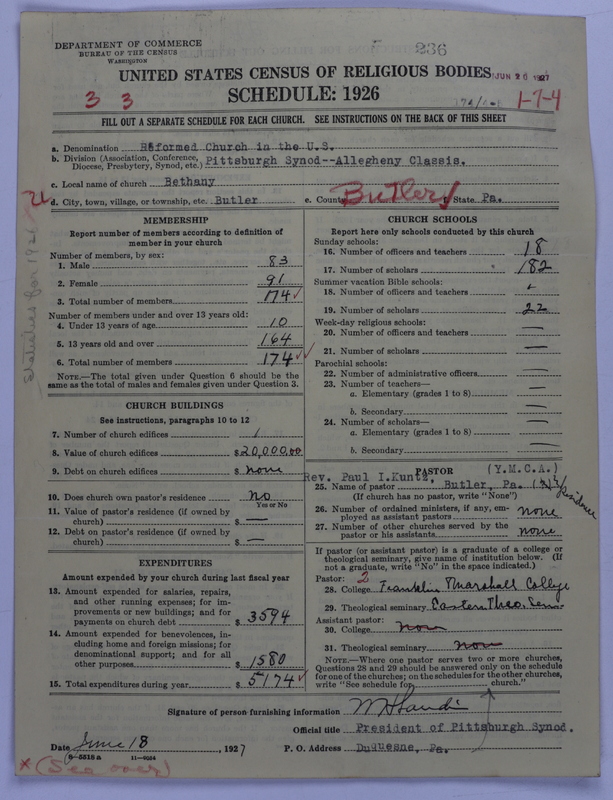 DEPARTMENT OF COMMERCE
BUREAU OF THE CENSUS
WASHINGTON
236
UNITED STATES CENSUS OF RELIGIOUS BODIES
JUN 20 1927
SCHEDULE: 1926
3 3
1-7-4
FILL OUT A SEPARATE SCHEDULE FOR EACH CHURCH. SEE INSTRUCTIONS ON THE BACK OF THIS SHEET
a. Denomination Reformed Church in the U.S.
b. Division (Association, Conference, Diocese, Presbytery, Synod, etc.) Pittsburgh Synod--Allegheny Classis.
c. Local name of church Bethany
d. City, town, village, or township, etc. Butler e. County Butler f. State Pa.
Statistics for 1926
MEMBERSHIP
Report number of members according to definition of
member in your church
Number of members, by sex:
1. Male 83
2. Female 91
3. Total number of members 174
Number of members under and over 13 years old:
4. Under 13 years of age 10
5. 13 years old and over 164
6. Total number of members 174
NOTE.—The total given under Question 6 should be
same as the total of males and females given under Question 3.
CHURCH BUILDINGS
See instructions, paragraphs 10 to 12
7. Number of church edifices 1
8. Value of church edifices $20,000.00
9. Debt on church edifices $ none
10. Does church own pastor's residence no
Yes or No
11. Value of pastor's residence (if owned by
church) $ —
12. Debt on pastor's residence (if owned by
church) $ —
EXPENDITURES
Amount expended by your church during last fiscal year
13. Amount expended for salaries, repairs,
and other running expenses; for im-
provements or new buildings; and for
payments on church debt $ 3594
14. Amount expended for benevolences, in-
cluding home and foreign missions; for
denominational support; and for all
other purposes $ 1580
15. Total expenditures during year $ 5174
CHURCH SCHOOLS
Report here only schools conducted by this church
Sunday schools:
16. Number of officers and teachers 18
17. Number of scholars 182
Summer vacation Bible schools:
18. Number of officers and teachers
19. Number of scholars 22
Week-day religious schools:
20. Number of officers and teachers —
21. Number of scholars —
Parochial schools:
22. Number of administrative officers —
23. Number of teachers—
a. Elementary (grades 1 to 8) —
b. Secondary —
24. Number of scholars—
a. Elementary (grades 1 to 8) —
b. Secondary —
PASTOR (Y.M.C.A.)
Rev. Paul I. Kuntz,
25. Name of pastor Butler, Pa. residence
(If church has no pastor, write "None")
26. Number of ordained ministers, if any, em-
ployed as assistant pastors none
27. Number of other churches served by the
pastor or his assistants none
If pastor (or assistant pastor) is a graduate of a college or
theological seminary, give name of institution below. (If
not a graduate, write "No" in the space indicated.)
Pastor: 2
28. College Franklin Marshall College
29. Theological seminary Eastern Theo. Sem.
Assistant pastor:
30. College none
31. Theological seminary none
NOTE.—Where one pastor serves two or more churches,
Questions 28 and 29 should be answered only on the schedule
for one of the churches; on the schedules for the other churches,
write "See schedule for church."
Signature of person furnishing information
Official title President of Pittsburgh Synod.
Date June 18, 1927 P. O. Address Duquesne, Pa.
8-5518 a 11-9024
* (See over)